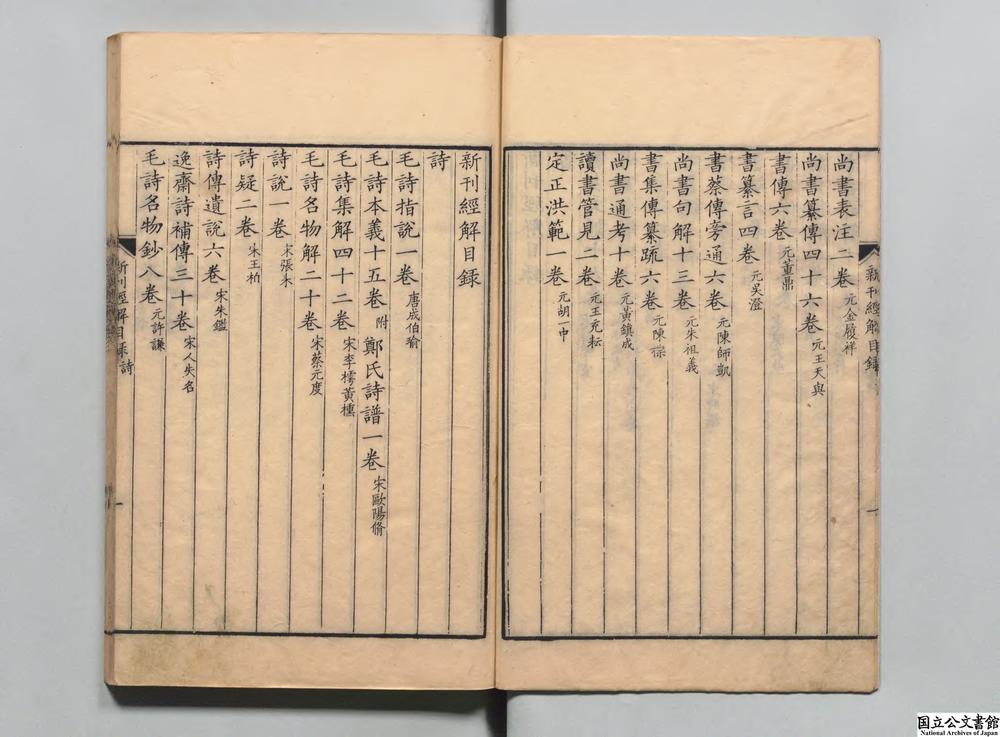 尚書表注二卷 元金履祥
尚書纂傳四十六卷 元王天與
書傳六卷 元董鼎
書纂言四卷 元吳澄
書蔡傳旁通六卷 元陳師凱
尚書句解十三卷 元朱祖義
書集傳纂疏六卷 元陳櫟
尚書通考十卷 元黃鎮成
讀書管見二卷 元王充耘
定正洪範一卷 元胡一中
新刊經解目録
新刊經解目録
詩
毛詩指說一卷 唐成伯瑜
毛詩本義十五卷 附 鄭氏詩譜一卷 宋歐陽脩
毛詩集解四十二卷 宋李樗黃櫄
毛詩名物解二十卷 宋蔡元度
詩說一卷 宋張耒
詩疑二卷 宋王柏
詩傳遺說六卷 宋朱鑑
逸齋詩補傳三十卷 宋人失名
毛詩名物鈔八卷 元許謙
新刊經解目录 詩 一
国立公文書館
National Archives of Japan